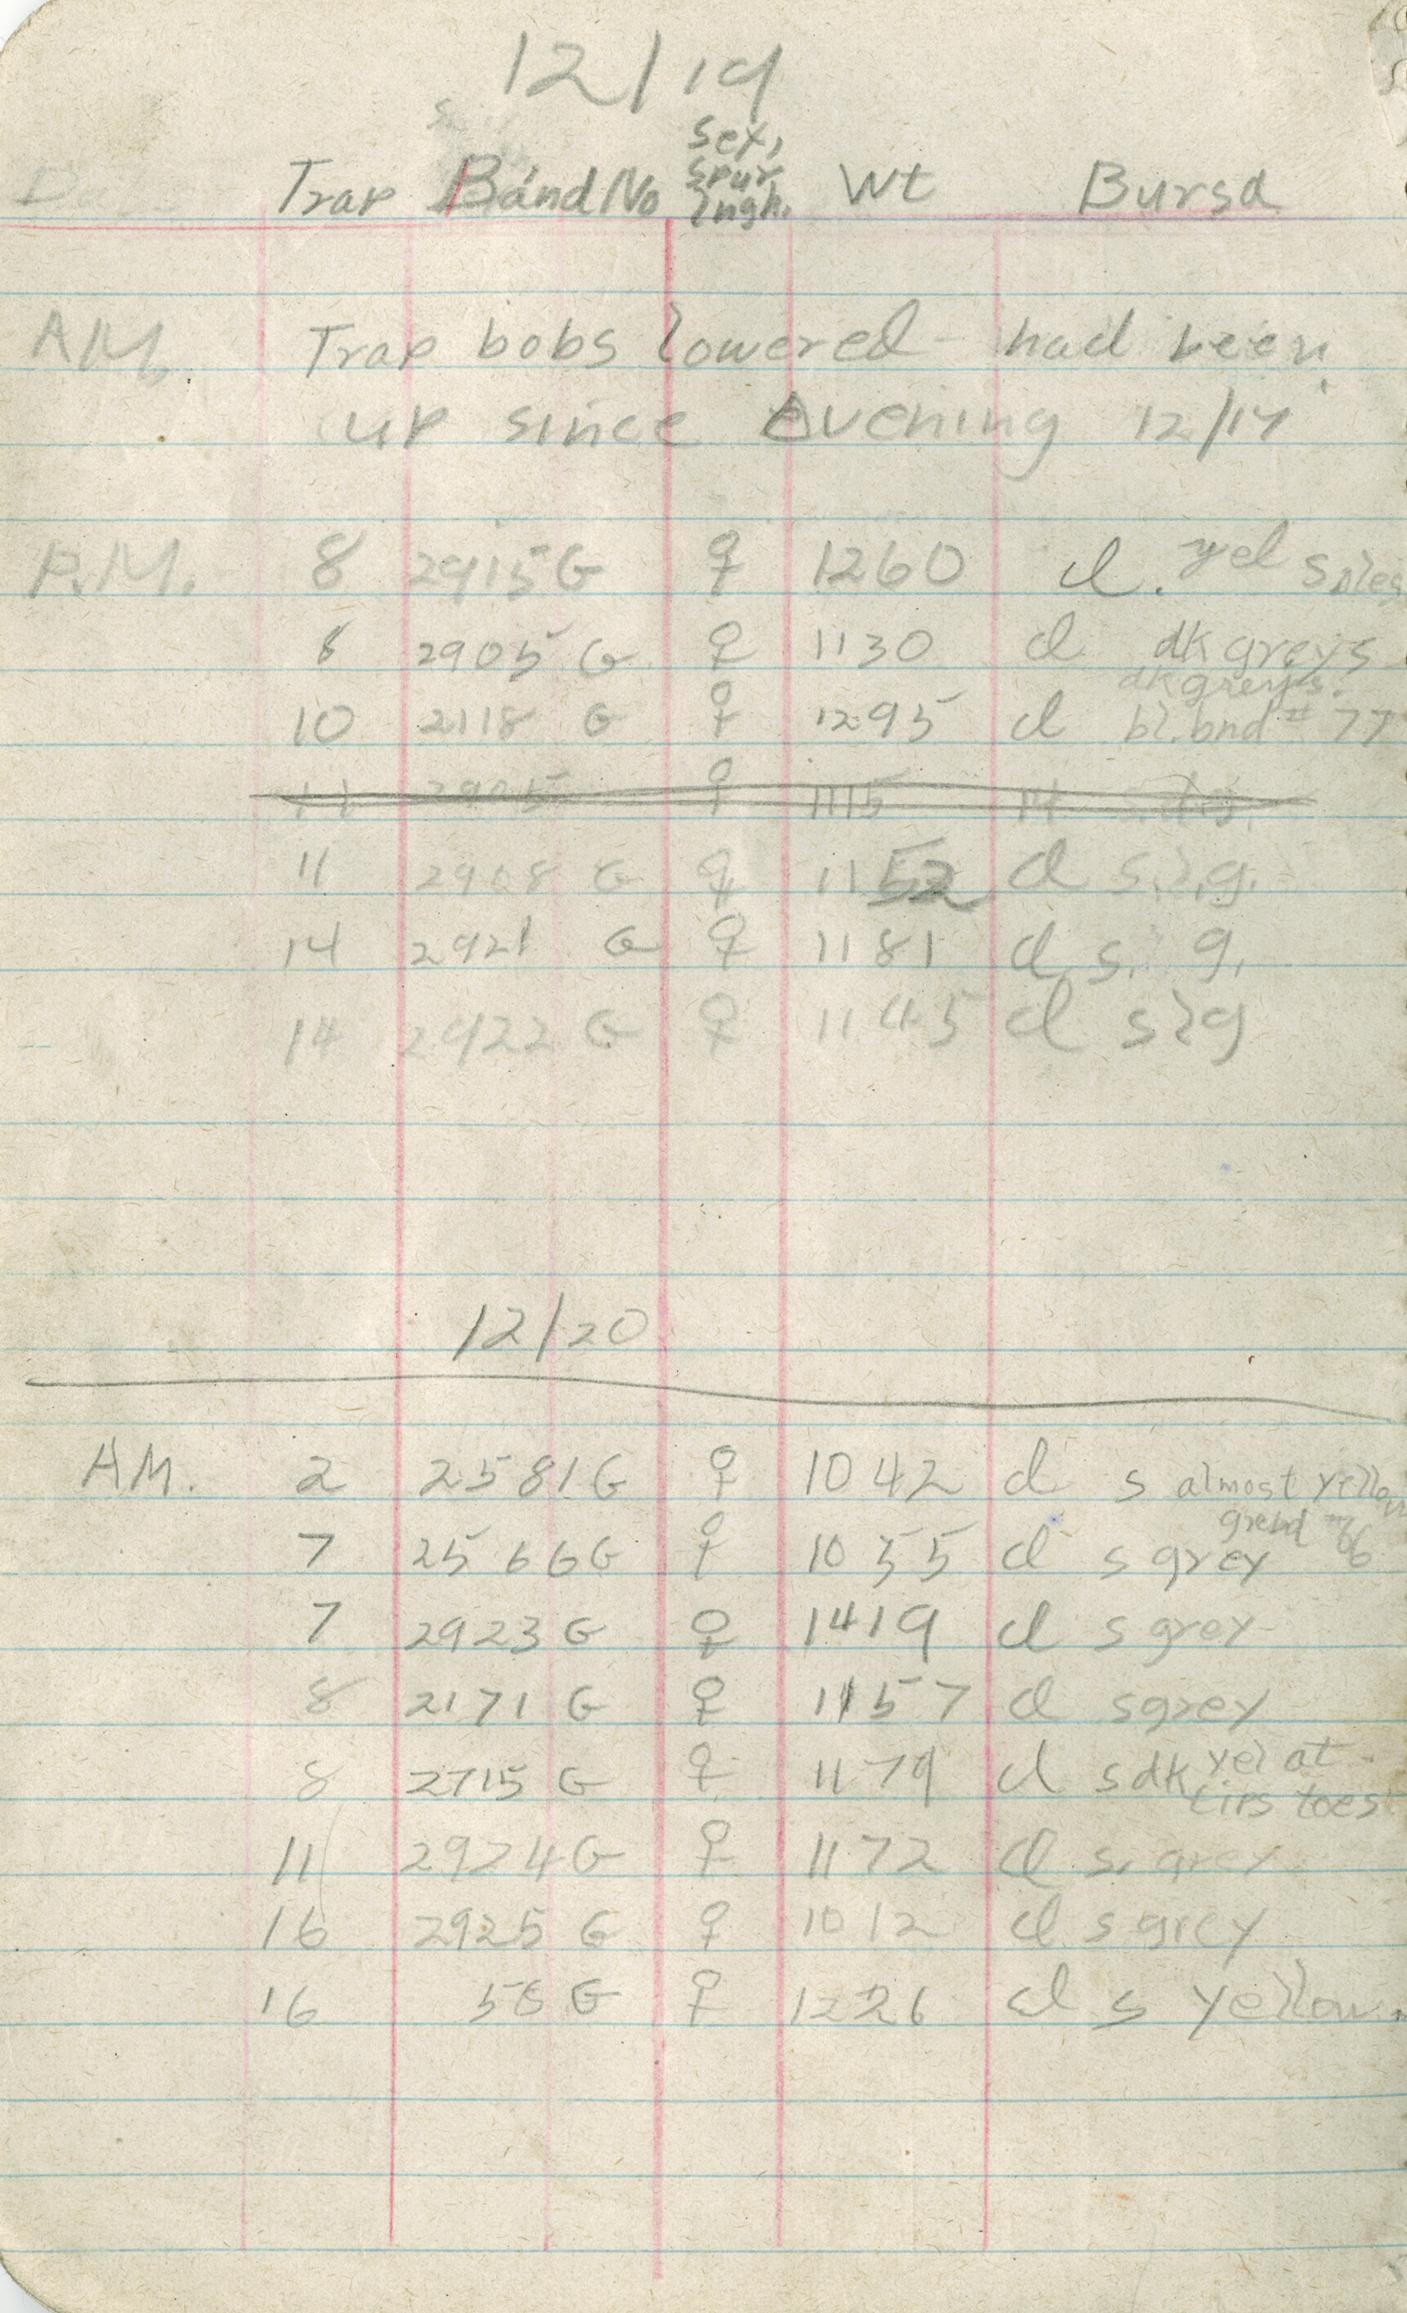 12/19
Trap Band No Sex, Spur lngh. Wt Bursa
A.M. Trap bobs lowered - had been
up since Evening 12/17
P.M. 8 2915 G ♀ 1260 d. yel soles
8 2905 G ♀ 1130 d dk grey s
dk grey s.
10 2118 G ♀ 1295 d bl. bnd # 77
11 2905 ♀ 1115
11 2908 G ♀ 1152 d s. l. g.
14 2921 G ♀ 1181 d s. l g.
14 2922 G ♀ 1145 d s l g
12/20
A.M. 2 2581 G ♀ 1042 d s almost yellow
7 2566 G ♀ 1035 d s grey
7 2923 G ♀ 1419 d s grey
8 2171 G ♀ 1157 d s grey
8 2715 G ♀ 1179 d s dk yel at
tips toes
11 2924 G ♀ 1172 d s. grey
16 2925 G ♀ 1012 d s grey
16 56 G ♀ 1226 d s yellow.